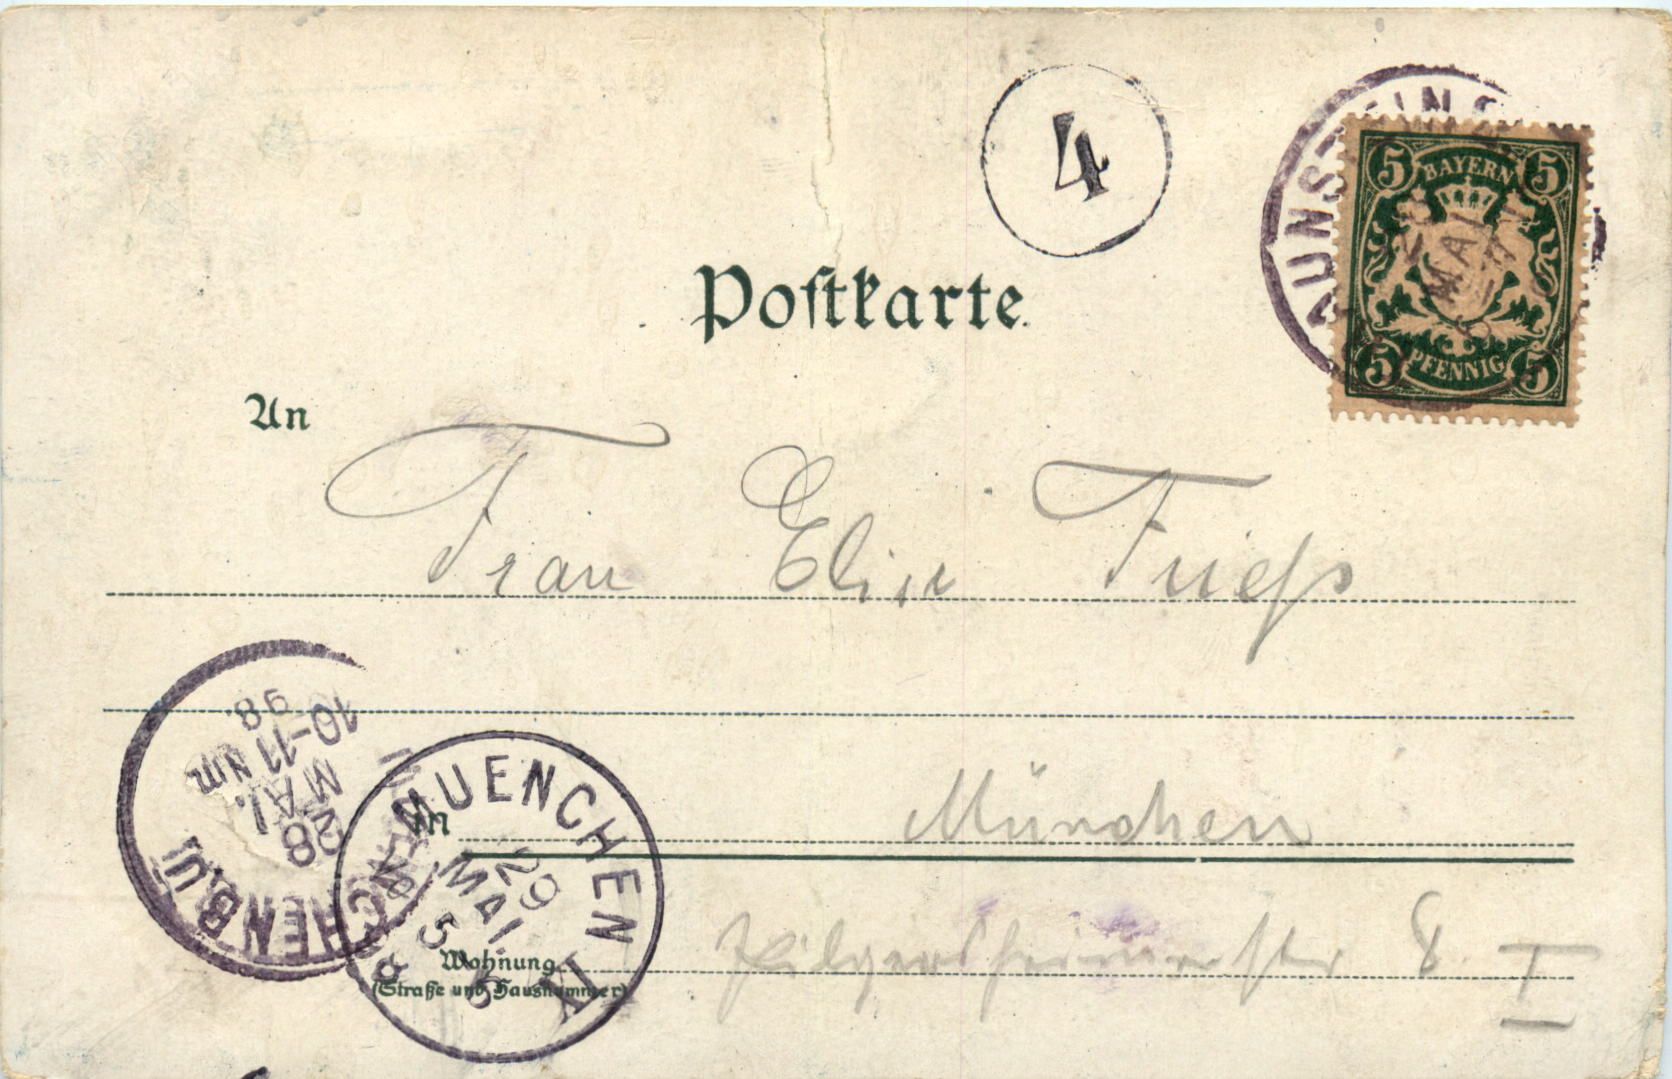 4
BAYERN
5 5
MAI
5 5
PFENNIG
Postkarte.
An
Frau Elise Friess
98.
10-11 Nm
MAI.
28
MUENCHEN
29
MAI.
5
In München
Wohnung
(Straße und Hausnummer)
Pilgersheimerstr 8. I